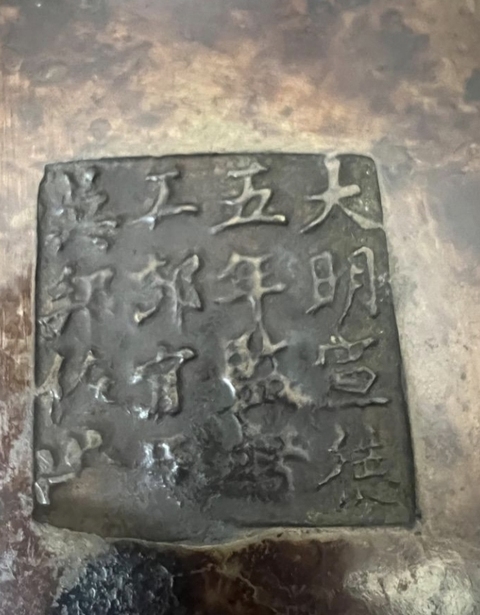 大明宣德
五年監督
工部官臣
吳邦佐造